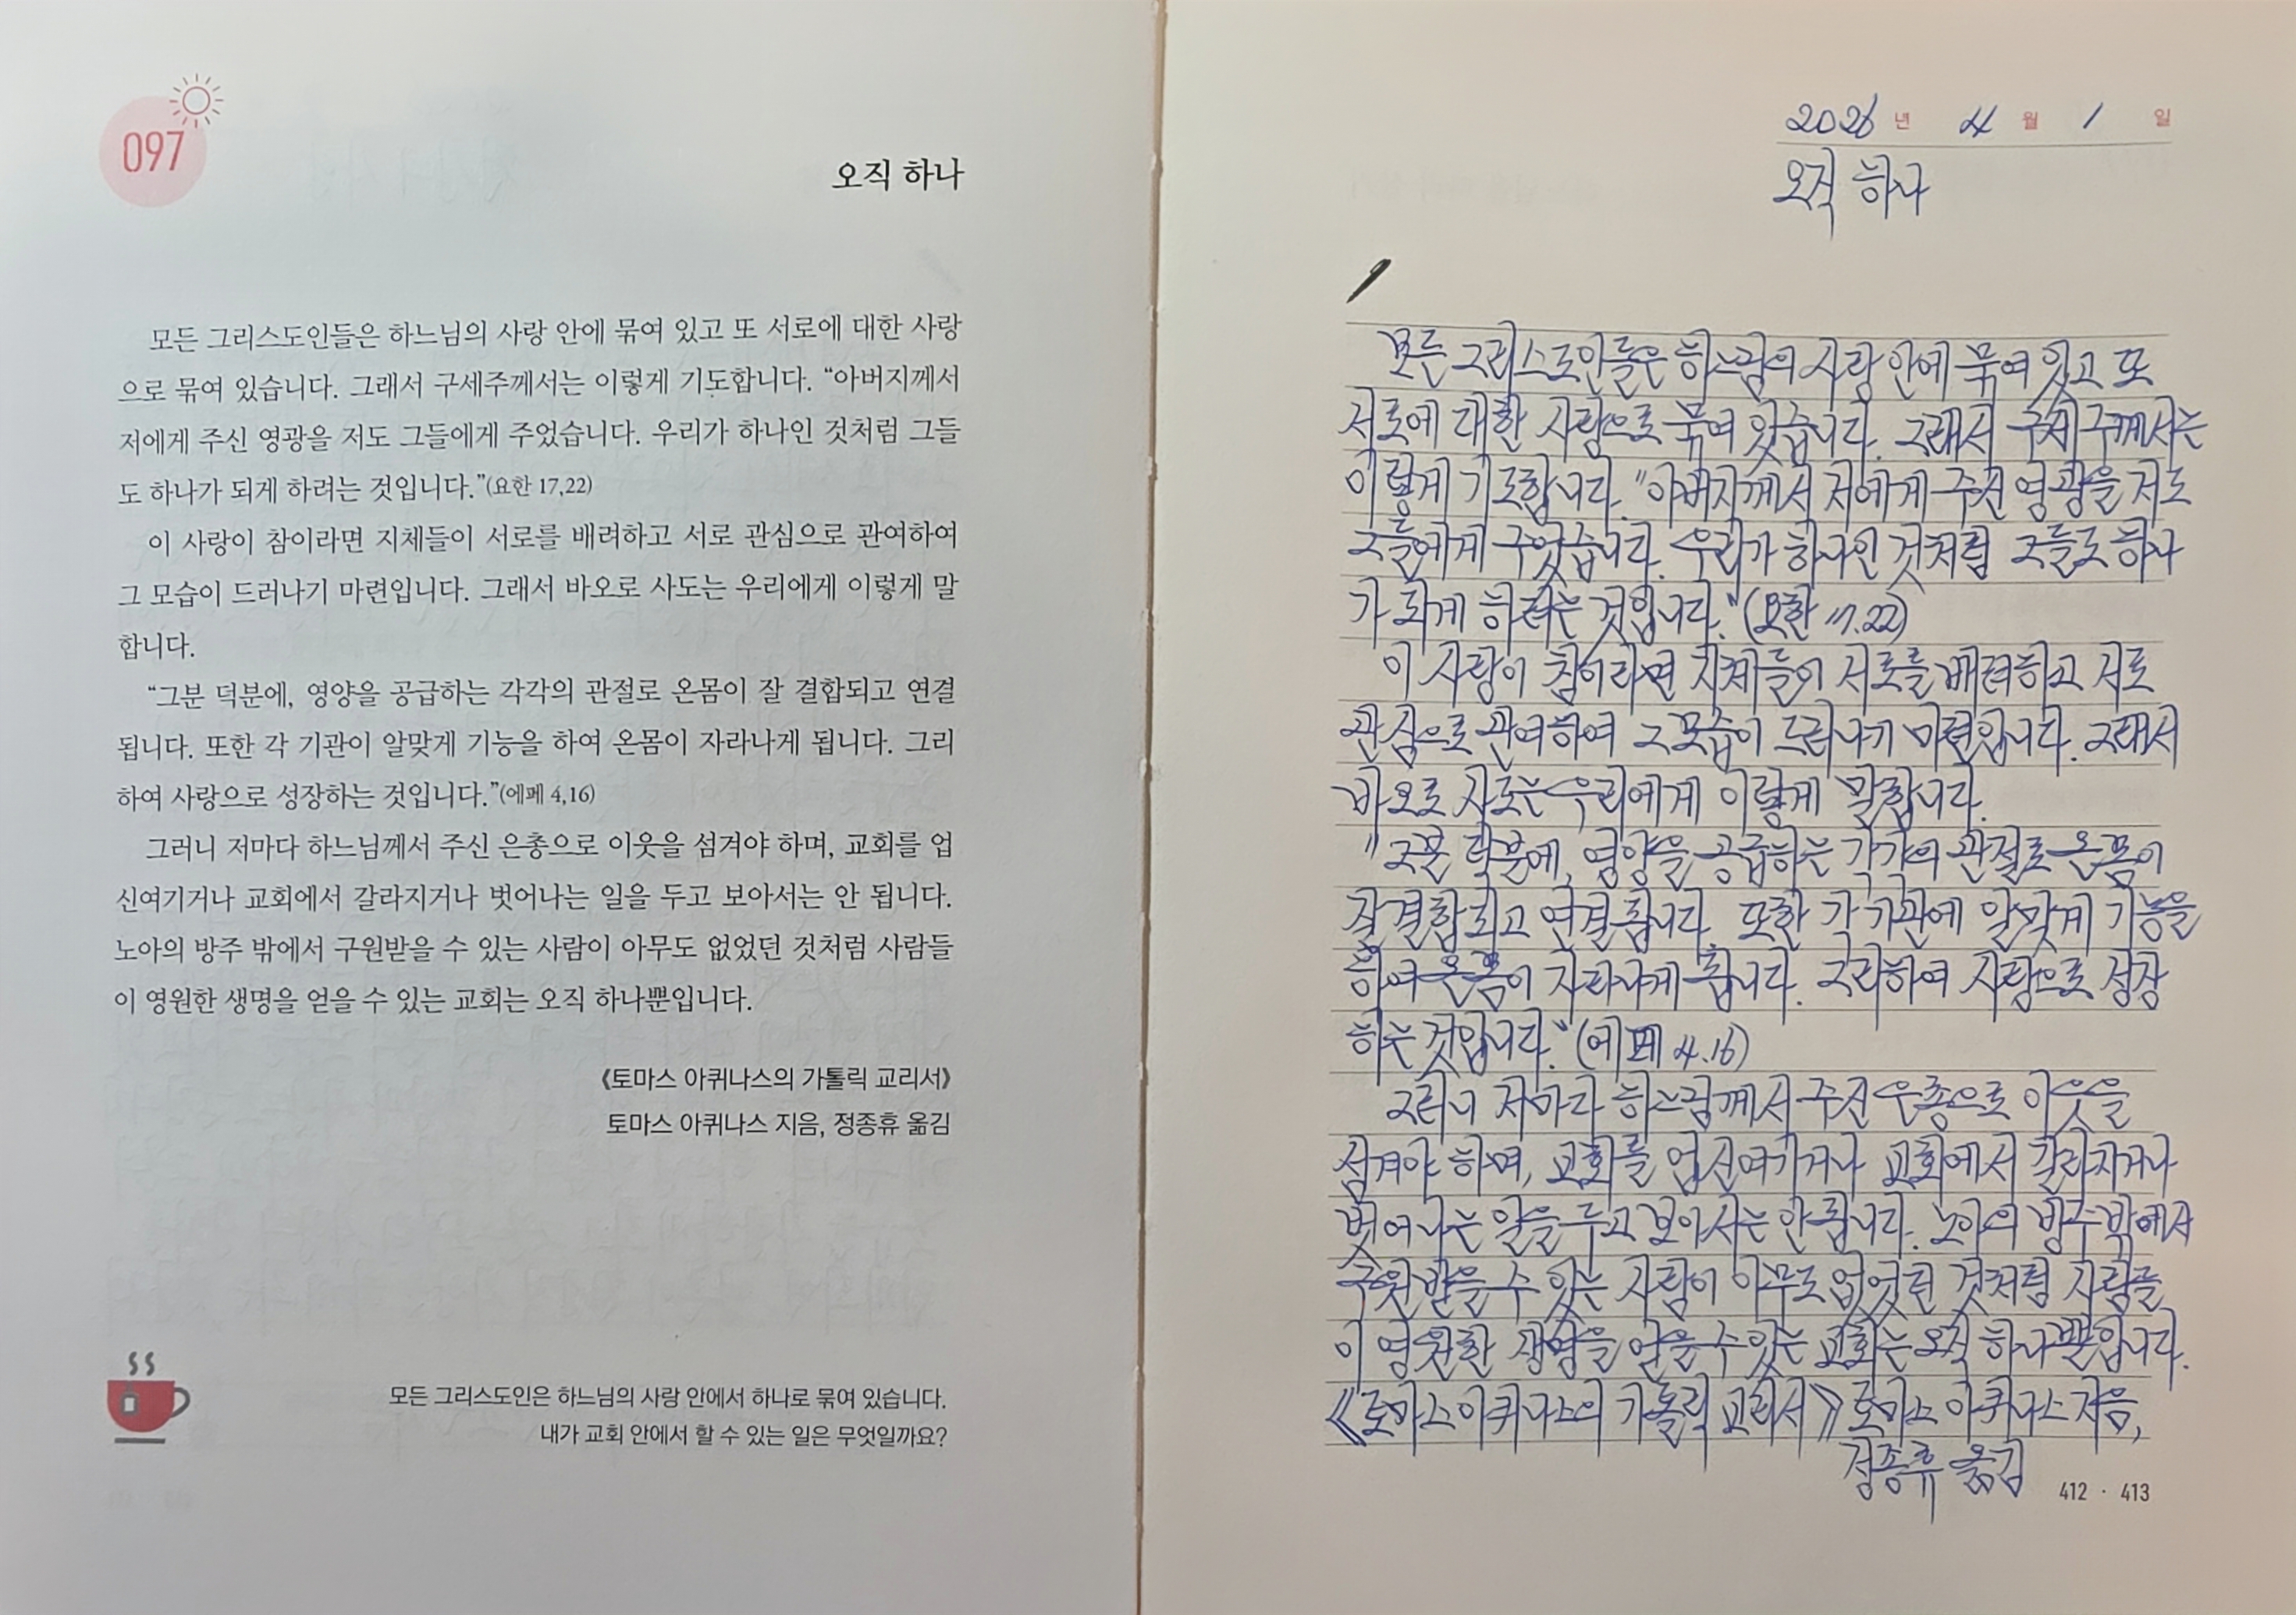 097
오직 하나
모든 그리스도인들은 하느님의 사랑 안에 묶여 있고 또 서로에 대한 사랑
으로 묶여 있습니다. 그래서 구세주께서는 이렇게 기도합니다. “아버지께서
저에게 주신 영광을 저도 그들에게 주었습니다. 우리가 하나인 것처럼 그들
도 하나가 되게 하려는 것입니다.”(요한 17,22)
이 사랑이 참이라면 지체들이 서로를 배려하고 서로 관심으로 관여하여
그 모습이 드러나기 마련입니다. 그래서 바오로 사도는 우리에게 이렇게 말
합니다.
“그분 덕분에, 영양을 공급하는 각각의 관절로 온몸이 잘 결합되고 연결
됩니다. 또한 각 기관이 알맞게 기능을 하여 온몸이 자라나게 됩니다. 그리
하여 사랑으로 성장하는 것입니다.”(에페 4,16)
그러니 저마다 하느님께서 주신 은총으로 이웃을 섬겨야 하며, 교회를 업
신여기거나 교회에서 갈라지거나 벗어나는 일을 두고 보아서는 안 됩니다.
노아의 방주 밖에서 구원받을 수 있는 사람이 아무도 없었던 것처럼 사람들
이 영원한 생명을 얻을 수 있는 교회는 오직 하나뿐입니다.
《토마스 아퀴나스의 가톨릭 교리서》
토마스 아퀴나스 지음, 정종휴 옮김
모든 그리스도인은 하느님의 사랑 안에서 하나로 묶여 있습니다.
내가 교회 안에서 할 수 있는 일은 무엇일까요?
2026 년 4 월 1 일
오직 하나
모든 그리스도인들은 하느님의 사랑 안에 묶여 있고 또
서로에 대한 사랑으로 묶여 있습니다. 그래서 구세주께서는
이렇게 기도합니다. "아버지께서 저에게 주신 영광을 저도
그들에게 주었습니다. 우리가 하나인 것처럼 그들도 하나
가 되게 하려는 것입니다." (요한 17.22)
이 사랑이 참이라면 지체들이 서로를 배려하고 서로
관심으로 관여하여 그 모습이 드러나기 마련입니다. 그래서
바오로 사도는 우리에게 이렇게 말합니다.
"그분 덕분에, 영양을 공급하는 각각의 관절로 온몸이
잘 결합되고 연결됩니다. 또한 각 기관에 알맞게 기능을
하여 온몸이 자라나게 됩니다. 그리하여 사랑으로 성장
하는 것입니다." (에페 4.16)
그러니 저마다 하느님께서 주신 은총으로 이웃을
섬겨야 하며, 교회를 업신여기거나 교회에서 갈라지거나
벗어나는 일을 두고 보아서는 안 됩니다. 노아의 방주 밖에서
구원받을 수 있는 사람이 아무도 없었던 것처럼 사람들
이 영원한 생명을 얻을 수 있는 교회는 오직 하나뿐입니다.
《토마스 아퀴나스의 가톨릭 교리서》 토마스 아퀴나스 지음,
정종휴 옮김
412 · 413